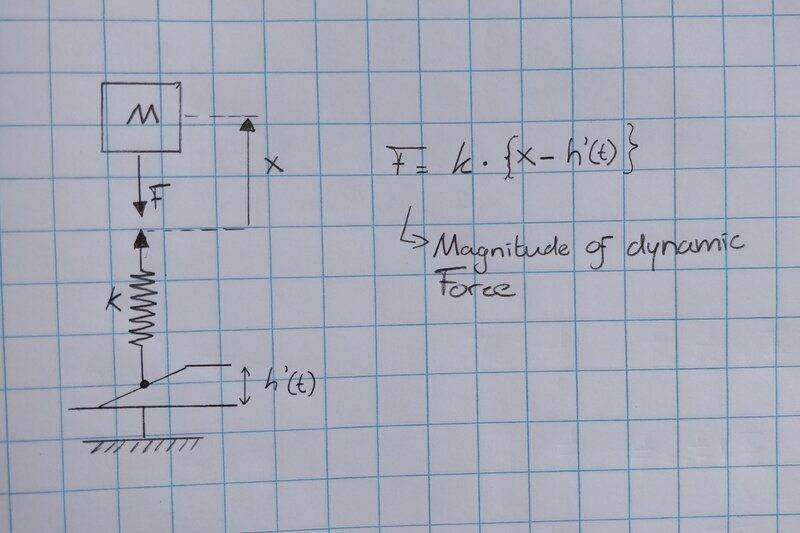 M
F
x
k
h'(t)
F = k · {x - h'(t)}
↳ Magnitude of dynamic
Force